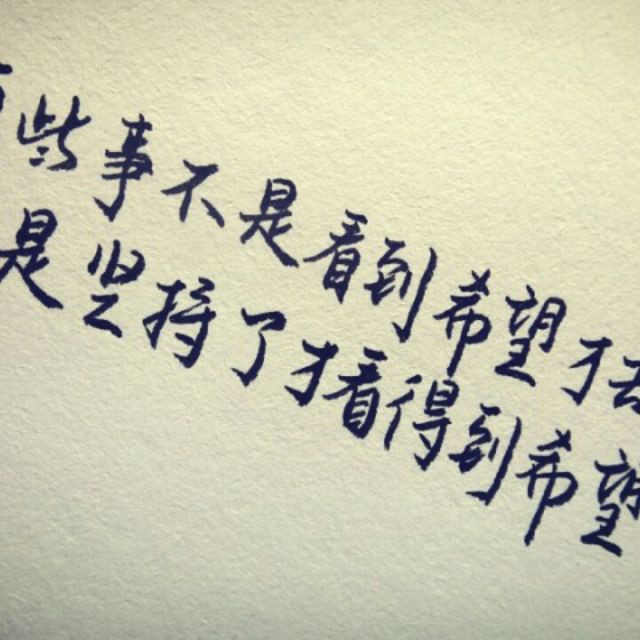 些事不是看到希望才去
是坚持了才看得到希望